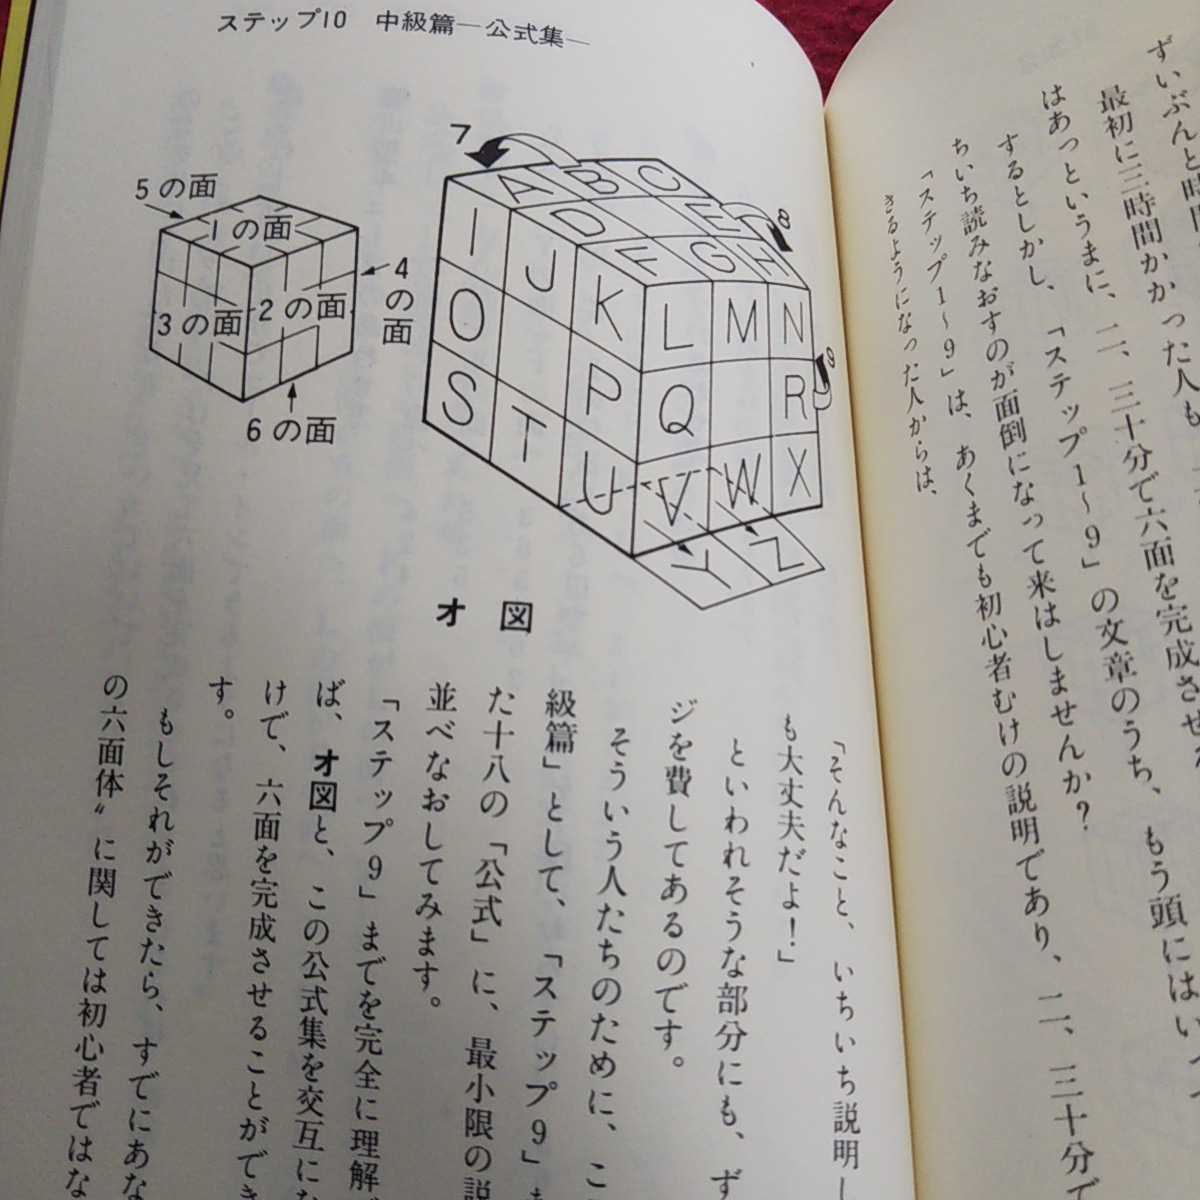 ずいぶんと時間
最初に三時間かかった人も
はあっというまに、二、三十分で六面を完成させ
するとしかし、「ステップ1〜9」の文章のうち、もう頭にはい
ちいち読みなおすのが面倒になって来はしませんか？
「ステップ1〜9」は、あくまでも初心者むけの説明であり、二、三十分で
きるようになった人からは、
ステップ10 中級篇―公式集―
5の面
1の面
3の面
2の面
4の面
6の面
7
8
9
A B C
D E
F G H
I J K L M N
O P Q R
S T U V W X
Y Z
オ図
「そんなこと、いちいち説明し
も大丈夫だよ！」
といわれそうな部分にも、ず
ジを費してあるのです。
そういう人たちのために、こ
級篇」として、「ステップ9」ま
た十八の「公式」に、最小限の説
並べなおしてみます。
「ステップ9」までを完全に理解
ば、オ図と、この公式集を交互に
けで、六面を完成させることができ
す。
もしそれができたら、すでにあな
の六面体〟に関しては初心者ではな